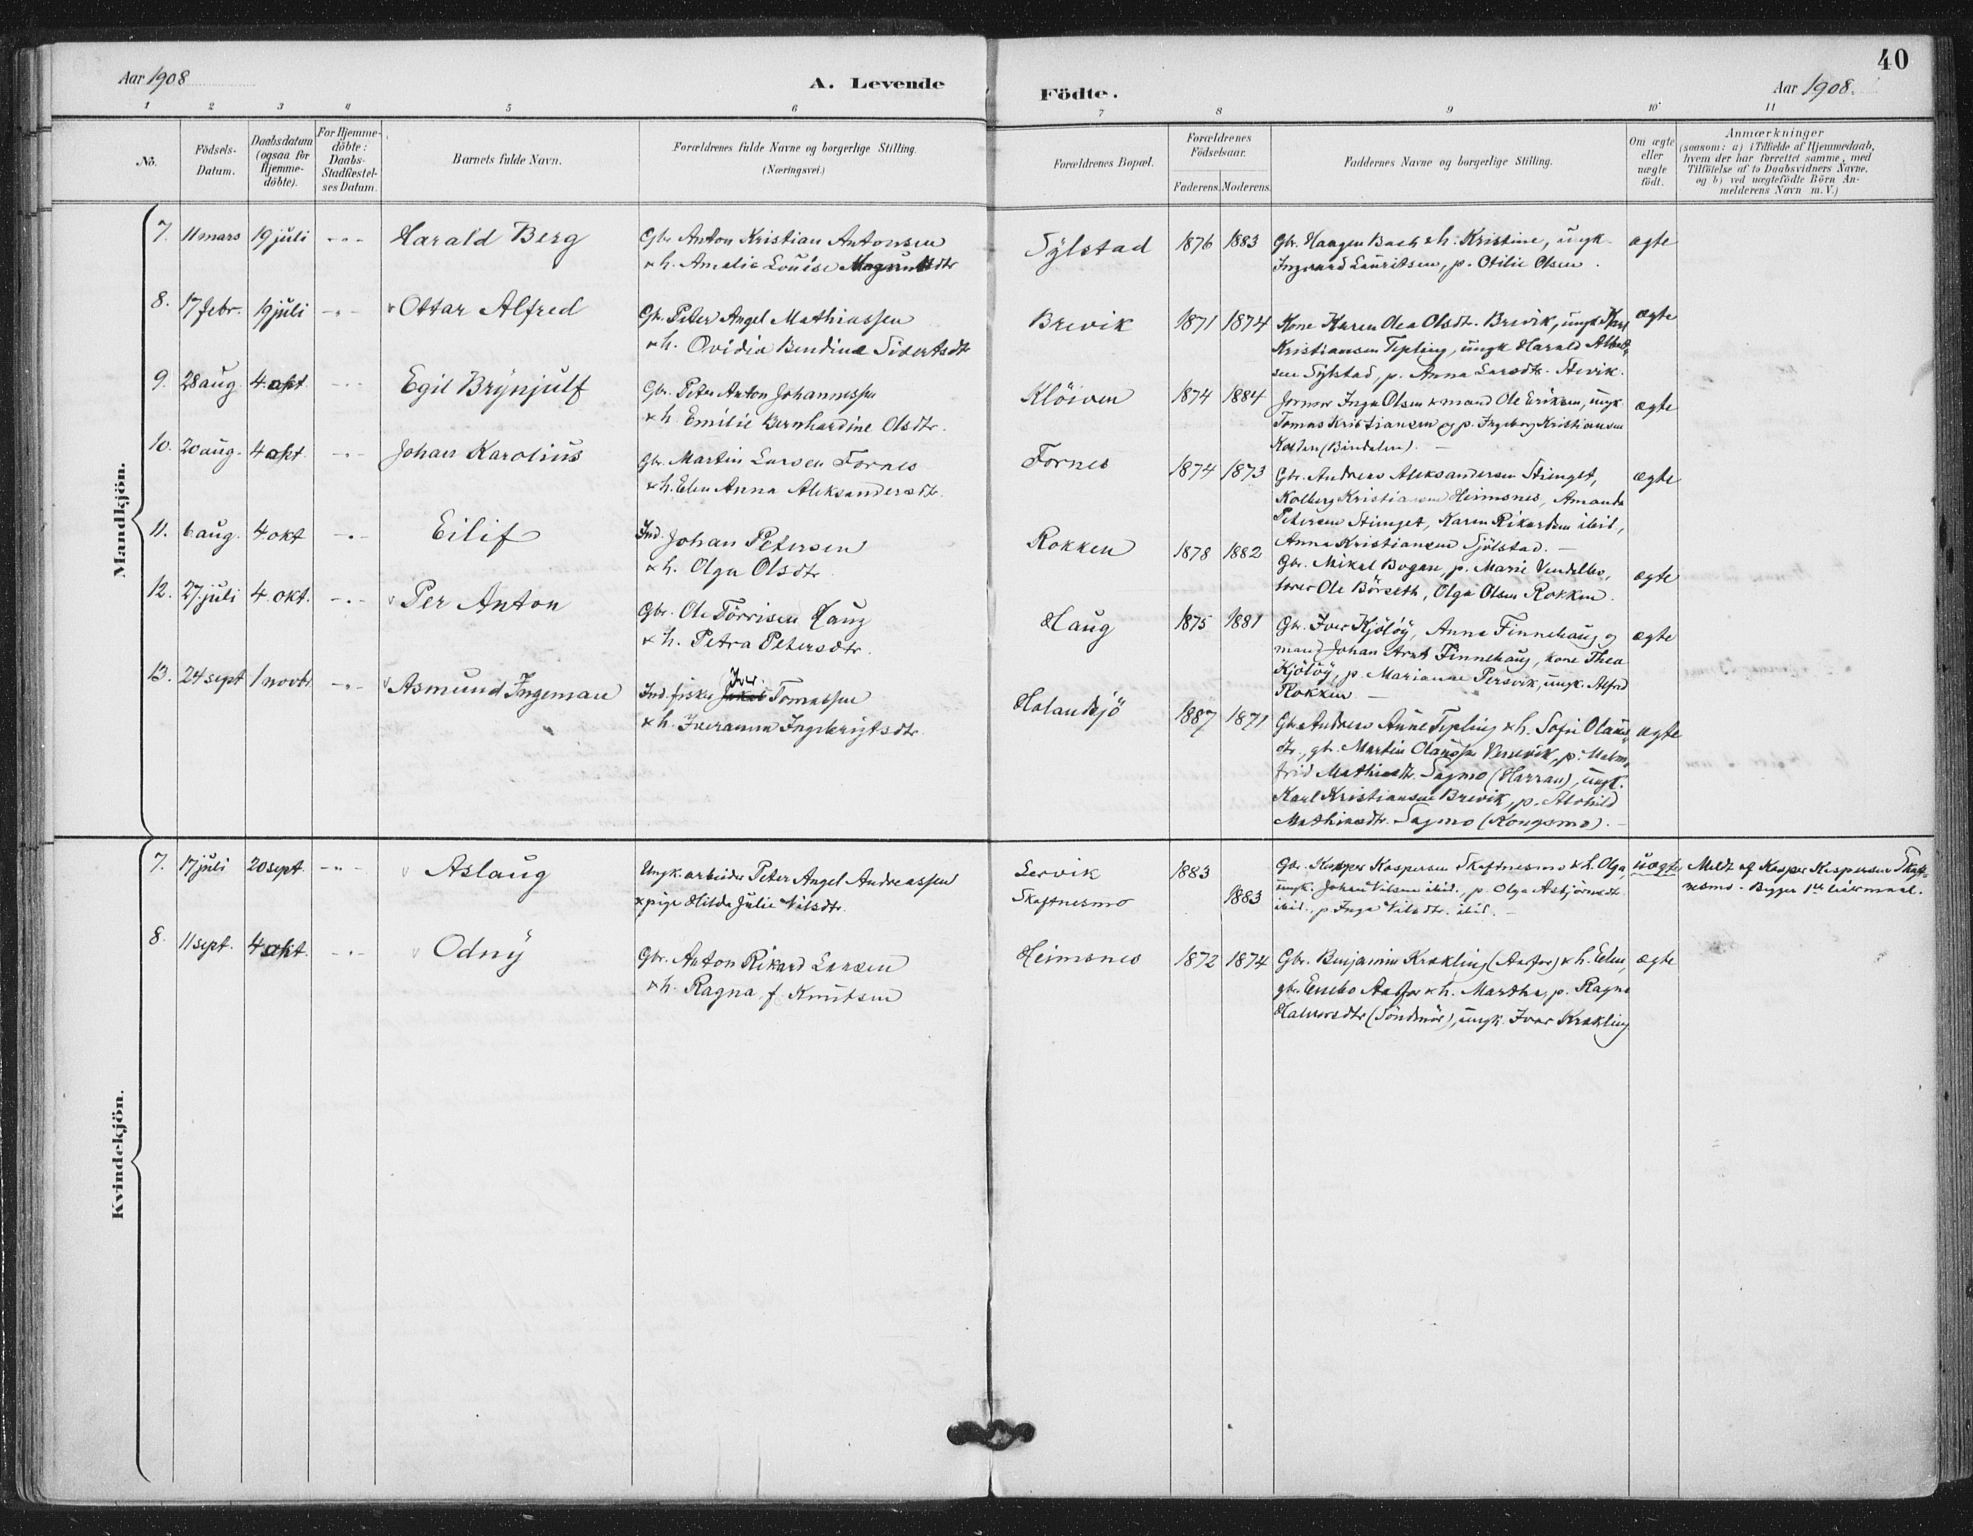 Aar 1908
A. Levende
Födte.
Aar 1908.
40
1 2 3 4 5 6 7 8 9 10 11
No.
Födsels-Datum.
Daabsdatum (ogsaa for Hjemme-döbte).
For Hjemme-döbte: Daabs-Stadfæstel-ses Datum.
Barnets fulde Navn.
Forældrenes fulde Navne og borgerlige Stilling. (Næringsvei.)
Forældrenes Bopæl.
Forældrenes Födselsaar.
Faderens. Moderens.
Faddernes Navne og borgerlige Stilling.
Om ægte eller uægte födt.
Anmærkninger
(saasom: a) i Tilfælde af Hjemmedaab,
hvem der har forrettet samme, med
Tilföielse af to Daabsvidners Navne,
og b) ved uægtefödte Börn An-
melderens Navn m. V.)
Mandkjön.
7. 11 mars 19 juli -"- Harald Berg
Gbr. Anton Kristian Antonsen
& h. Amalie Louise
Sylstad 1876 1883
Gbr. Haagen Bach & h. Kristine, ungk.
Ingvard Lauritsen, p. Otilie Olsen.
ægte
8. 17 febr. 19 juli -"- Ottar Alfred
Gbr. Peter Angel Mathiassen
& h. Ovidia Bendine Sivertsdtr
Brevik 1871 1874
Kone Karen Olea Olsdtr. Brevik, ungk. Karl
Kristiansen Tepling, ungk Harald
sen Sylstad, p. Anna Larsdtr.
ægte
9. 28 aug. 4 okt. -"- Egil Brynjulf
Gbr. Peter Anton Johannessen
& h. Emilie Bernhardine Olsdtr.
Klöiven 1874 1884
Jormor Inga Olsen & mand Ole Eriksen, ungk
Tomas Kristiansen og p. Ingeborg Kristiansen
(Bindalen). —
ægte
10. 20 aug. 4 okt. -"- Johan Karolius
Gbr. Martin Larsen Fornes
& h. Elen Anna Aleksandersdtr.
Fornes 1874 1873
Gbr. Andreas Aleksandersen
Kolberg Kristiansen Heimsnes, Amanda
Petersen Karen Rikardsen ibid,
Anna Kristiansen Sjölstad. —
ægte
11. 6 aug. 4 okt -"- Eilif
Ind. Johan Petersen
& h. Olga Olsdtr.
Rokken 1878 1882
Gbr. Mikal Bogan, p. Marie
Ole Börseth, Olga Olsen Rokken.
ægte
12. 27. juli 4. okt. -"- Per Anton
Gbr. Ole Törrisen Haug
& h. Petra Petersdtr.
Haug 1875 1881
Gbr. Iver Kjölöy, Anna Finnehaug og
mand Johan Arnt Finnehaug, kone Thea
Kjölöy, p. Marianne Persvik, ungk. Alfred
Rokken. —
ægte
13. 24 sept 1 novbr. -"- Asmund Ingeman
Iver.
Ind. fisker Tomassen
& h. Iveranna Ingebrigtsdtr.
Holandsjö 1887 1871
Gbr. Andreas Tepling & h. Sofie
gbr. Martin p. Malm-
frid Mathiasdtr. Sagmo (Harran), ungk.
Karl Kristiansen Brevik, p.
Mathiasdtr. Sagmo (Kongsmo). —
ægte
Kvindekjön.
7. 17 juli 20 sept. -"- Aslaug
Ungk. arbeider Peter Angel Andreassen
& pige Hilda Julie Nilsdtr.
Lervik 1883
Skaftnesmo 1883
Gbr. Kasper Kaspersen Skaftnesmo & h. Olga,
ungk. Johan Nilsen ibid., p. Olga Asbjörnsdtr.
ibid., p. Inga Nilsdtr. ibid. —
uægte
Meldt af Kasper Kaspersen Skaft-
nesmo. Begges 1ste leiermaal.
8. 11 sept. 4 okt. -"- Odny
Gbr. Anton Rikard Larsen
& h. Ragna f. Knutsen
Heimsnes 1872 1874
Gbr. Benjamin Krækling (Aafor) & h. Elen,
gbr. Aafor & h. Martha, p. Ragna
Halvorsdtr (Söndmör), ungk. Ivar Krækling
ægte